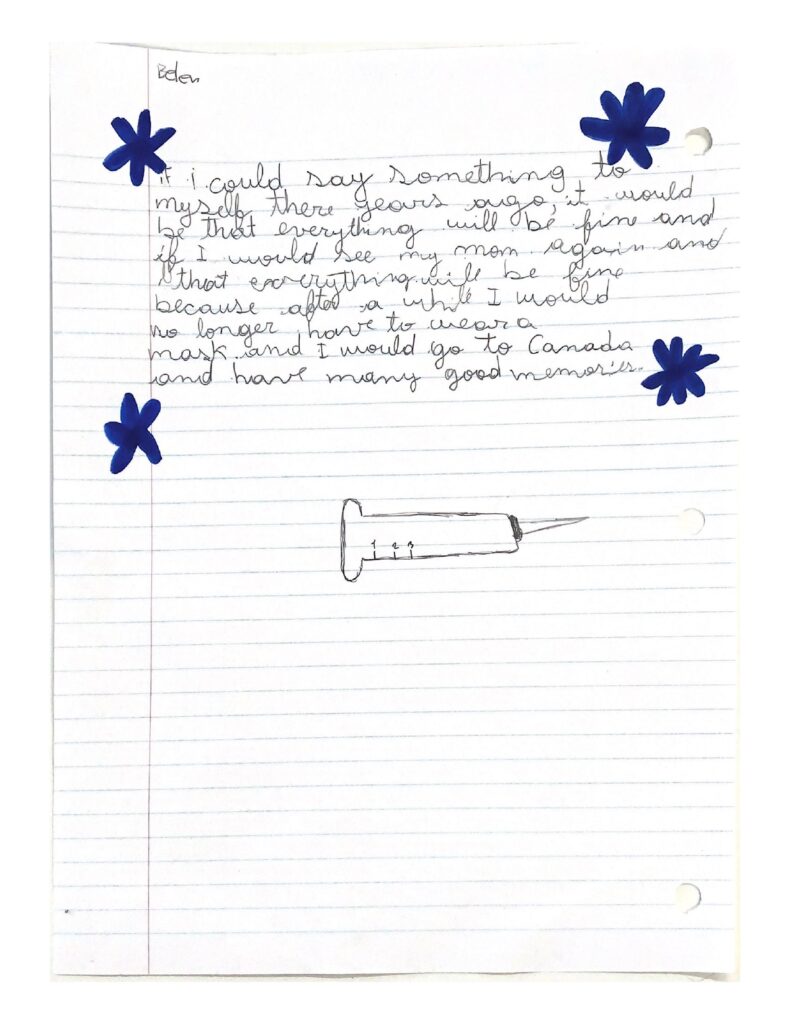 Belen
if i could say something to
myself there years ago, it would
be that everything will be fine and
if I would see my mom again and
that exverything will be fine
because after a while I would
no longer have to wear a
mask and I would go to Canada
and have many good memories.
1 2 3